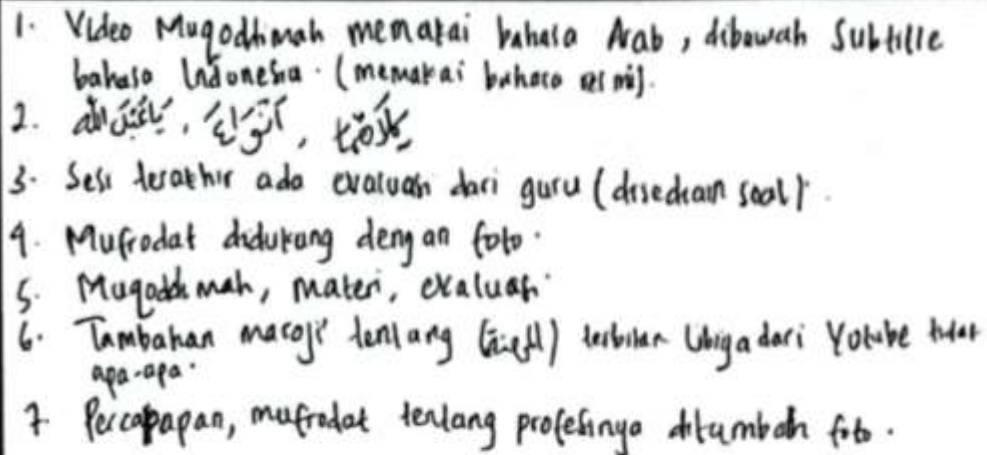 1. Video Muqoddimah memakai bahasa Arab, dibawah Subtitle
bahasa Indonesia. (memakai bahasa resmi).
2.
3. Sesi terakhir ada evaluasi dari guru (disediain soal).
4. Mufrodat didukung dengan foto.
5. Muqoddimah, materi, evaluasi.
6. Tambahan maroji' tentang (المهنة) dari Yotube tidak
apa-apa.
7. Percapapan, mufrodat tentang profesinya ditambah foto.